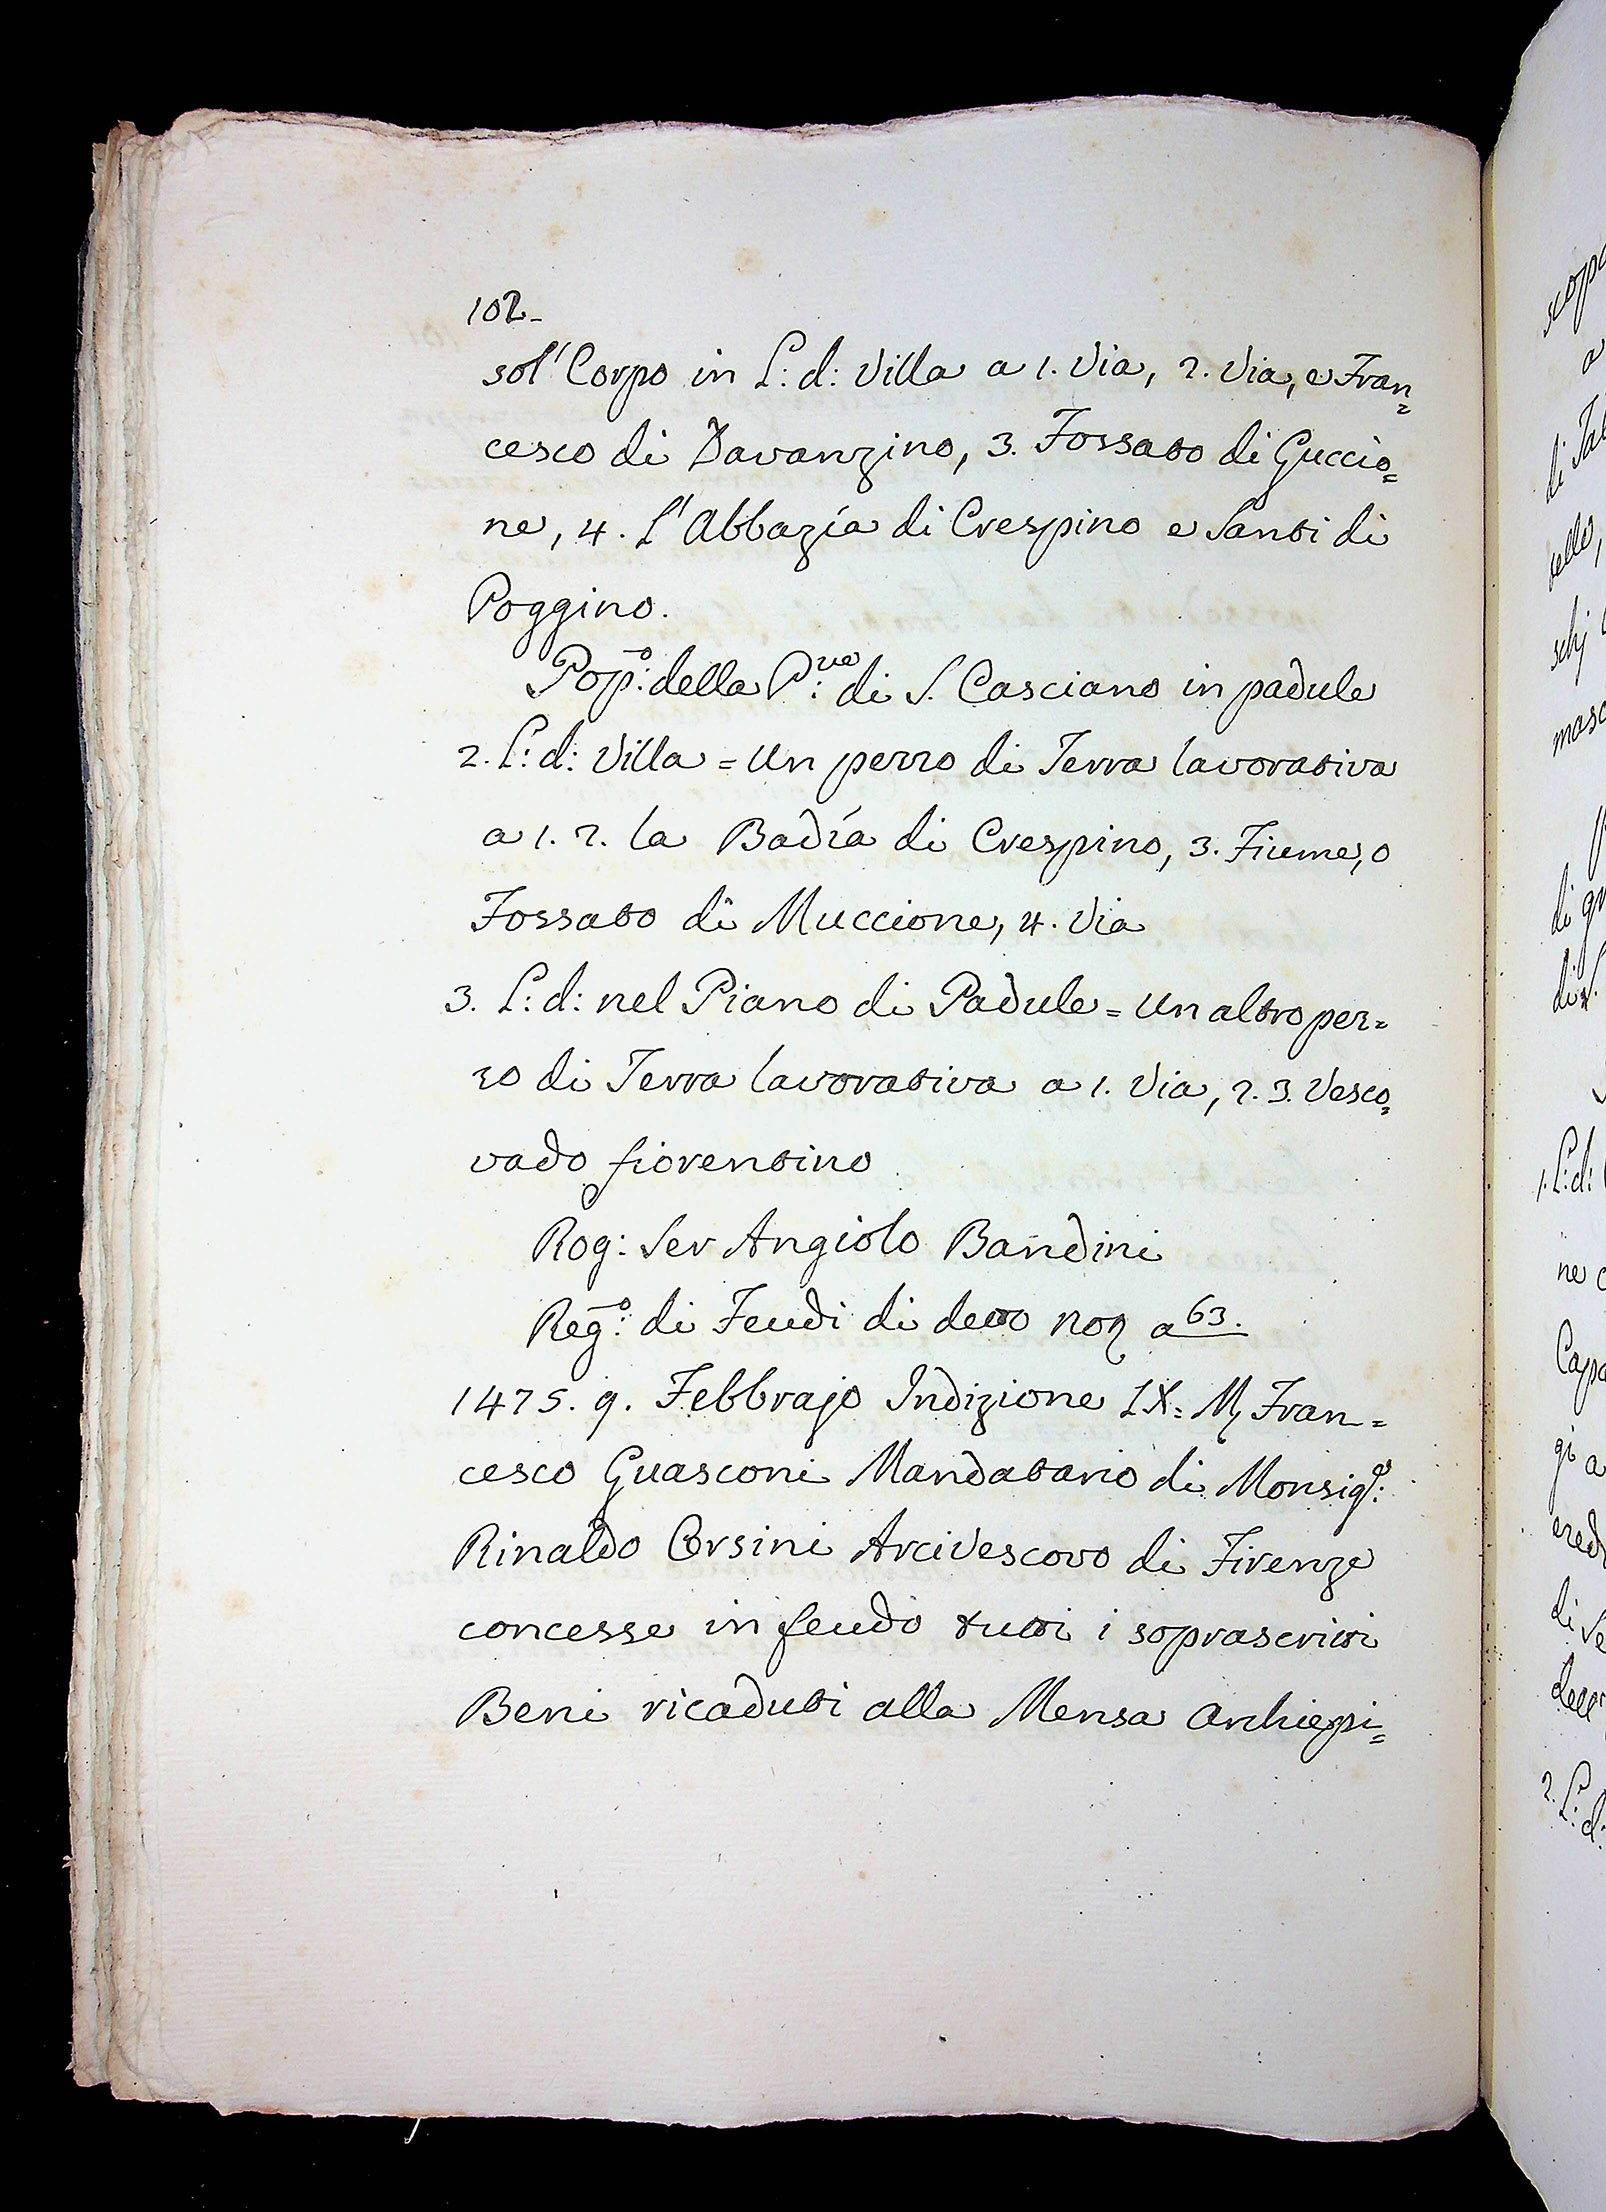 102.
sol' Corpo in L: d: Villa a 1. Via, 2. Via, e Fran=
cesco di Davanzino, 3. Fossato di Guccio=
ne, 4. L'Abbazía di Crespino e Santi di
Poggino.
Pop:o della P:ve di S. Casciano in padule
2. L: d: Villa = Un pezzo di Terra lavorativa
a 1. 2. la Badía di Crespino, 3. Fiume, o
Fossato di Muccione, 4. Via
3. L: d: nel Piano di Padule = Un altro pez=
zo di Terra lavorativa a 1. Via, 2. 3. Vesco=
vado fiorentino
Rog: Ser Angiolo Bandini
Reg:o di Feudi di detto Not a 63.
1475. 9. Febbrajo Indizione IX = M. Fran=
cesco Guasconi Mandatario di Monsig:r
Rinaldo Orsini Arcivescovo di Firenze
concesse in feudo tutti i soprascritti
Beni ricaduti alla Mensa Archiepi=